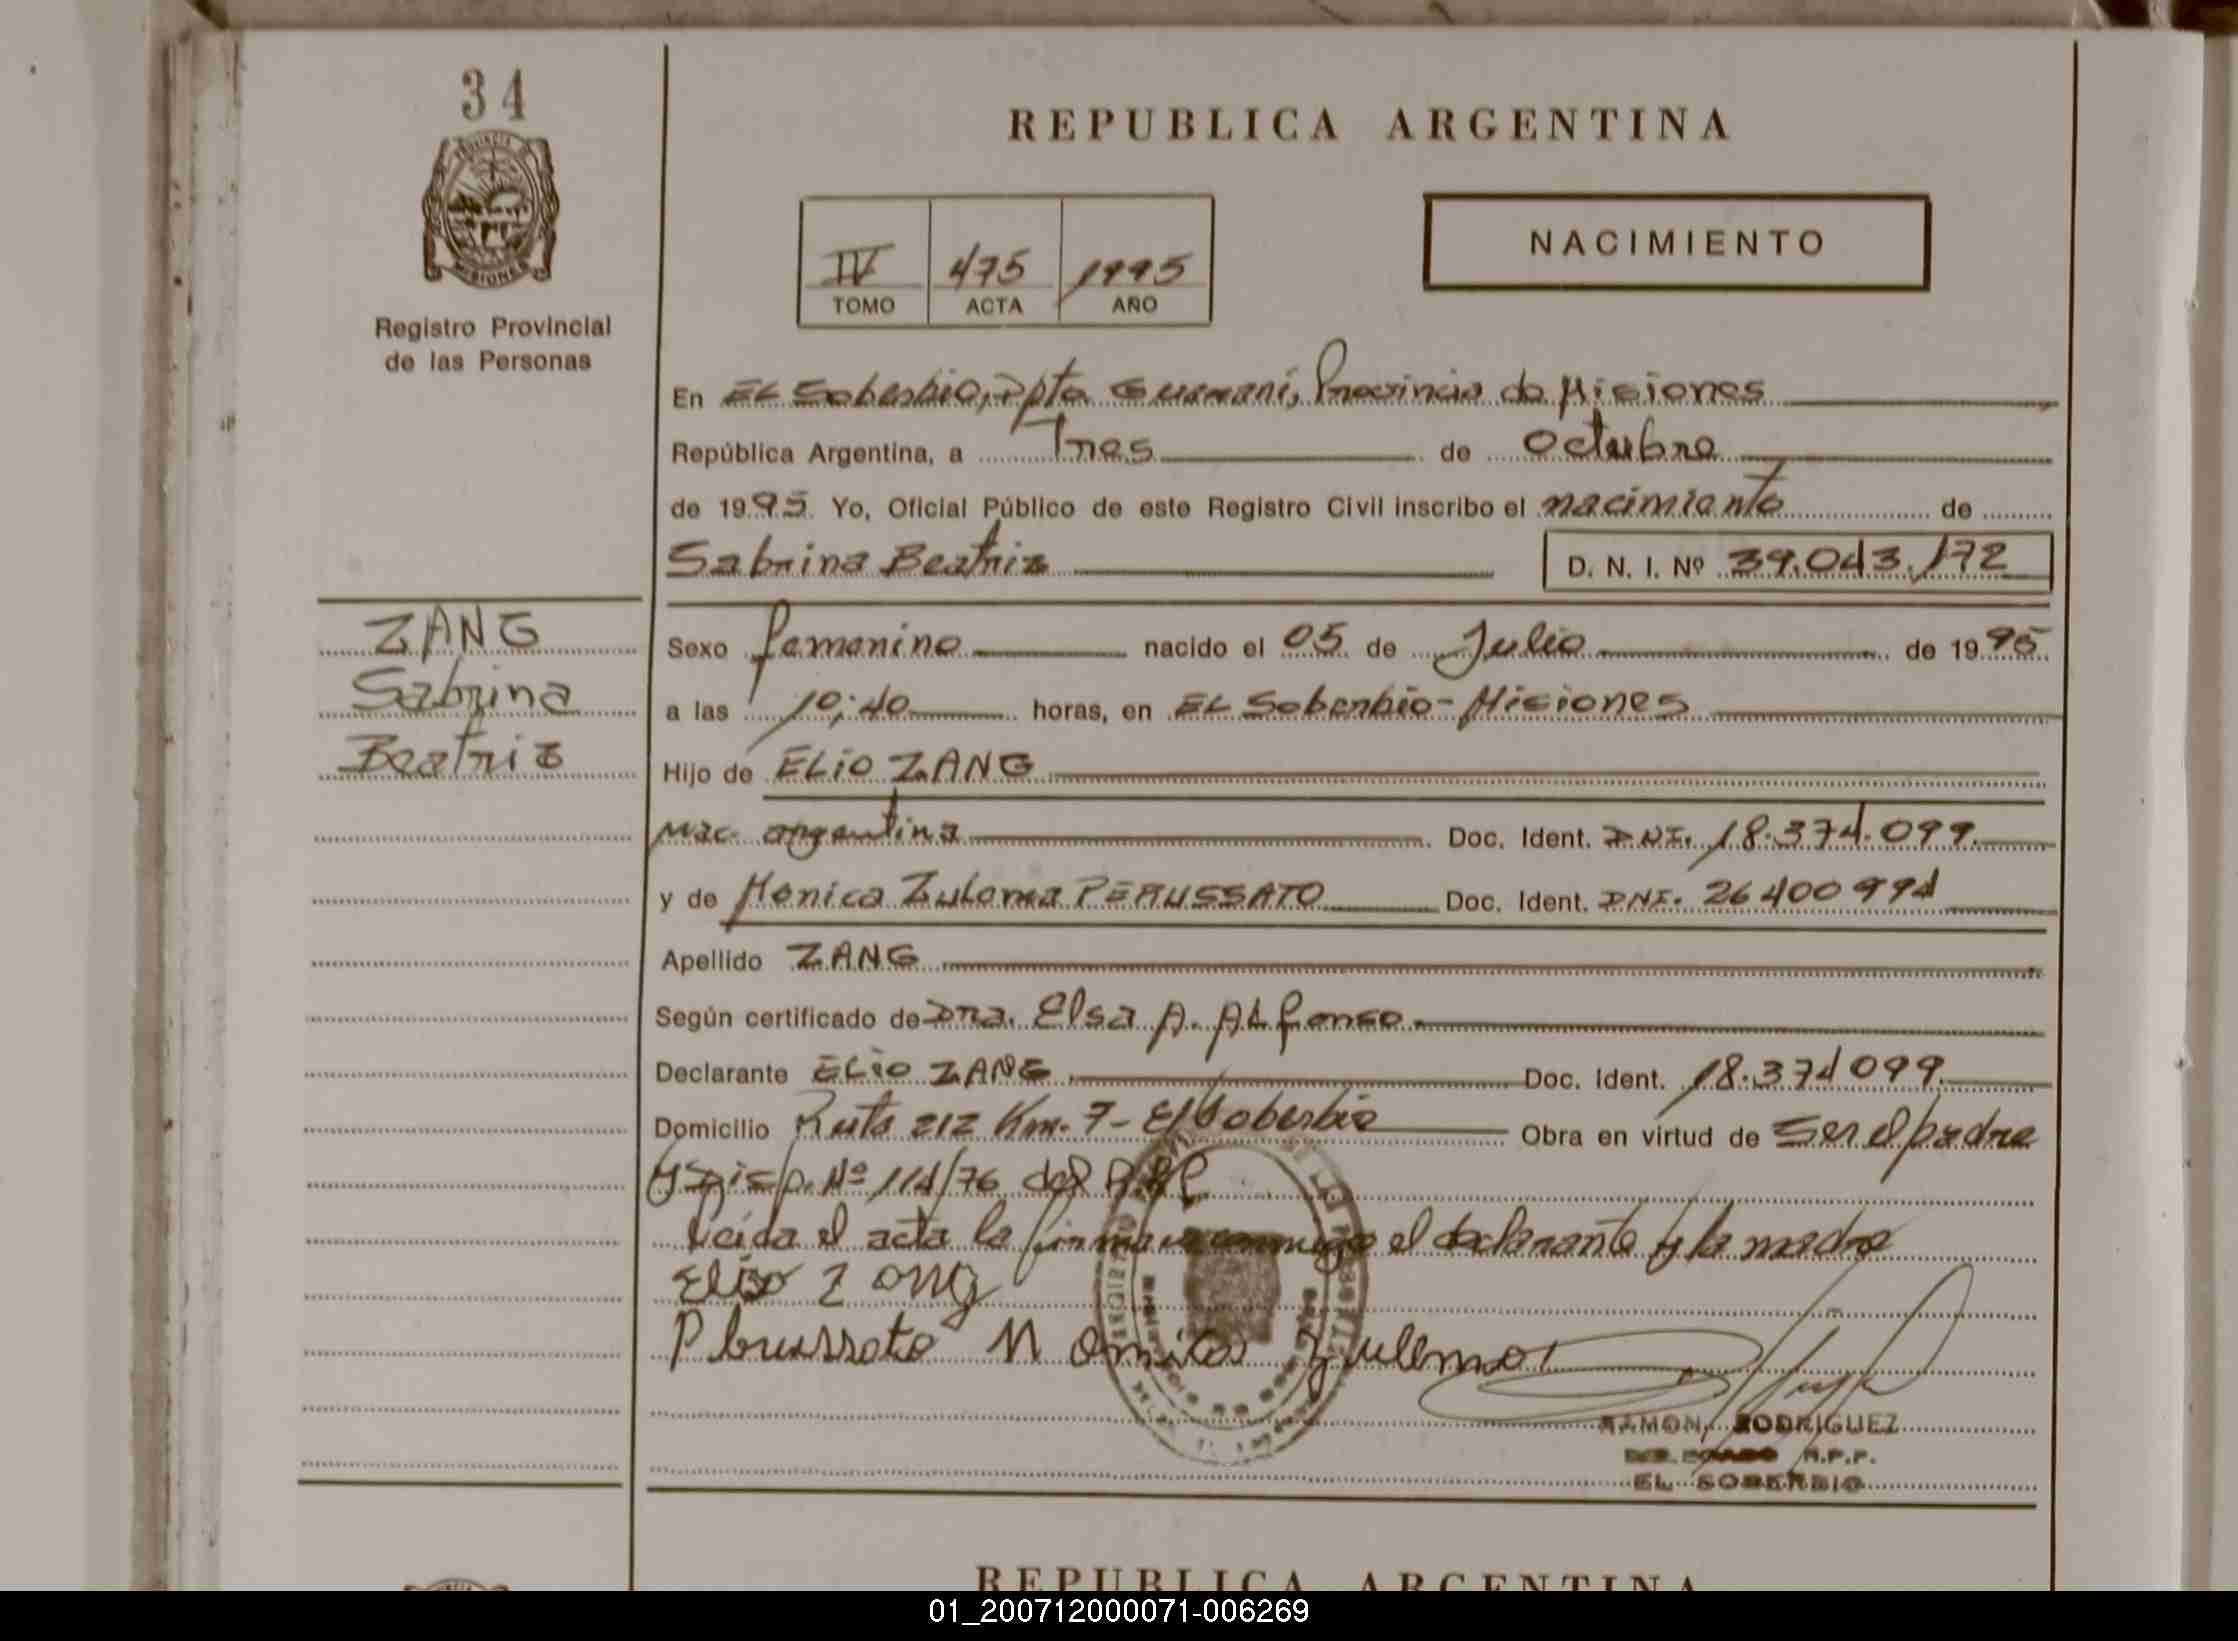 34
REPUBLICA ARGENTINA
PROVINCIA DE MISIONES
NACIMIENTO
IV 475 1995
TOMO ACTA AÑO
Registro Provincial
de las Personas
En EL Soberbio, Dpto Guaraní, Provincia de Misiones
República Argentina, a Tres de Octubre
de 1995. Yo, Oficial Público de este Registro Civil inscribo el nacimiento de
Sabrina Beatriz D. N. I. Nº 39.043.172
ZANG
Sabrina
Beatriz
Sexo femenino nacido el 05 de Julio de 1995
a las 10:40 horas, en EL Soberbio - Misiones
Hijo de ELIO ZANG
Nac. argentina Doc. Ident. DNI. 18.374.099.
y de Monica Zulema PERUSSATO Doc. Ident. DNI. 26400994
Apellido ZANG
Según certificado de Dra. Elsa A. ALfonso.
Declarante ELIO ZANG Doc. Ident. 18.374099.
Domicilio Ruta 212 Km. 7 - El Soberbio Obra en virtud de Ser el padre
y Disp. Nº 114/76 del R.P.P.
Leída el acta la firman conmigo el declarante y la madre
Elio Zang
Perussato Monica Zulema
RAMON RODRIGUEZ
DELEGADO R.P.P.
EL SOBERBIO
REPUBLICA ARGENTINA
01_200712000071-006269